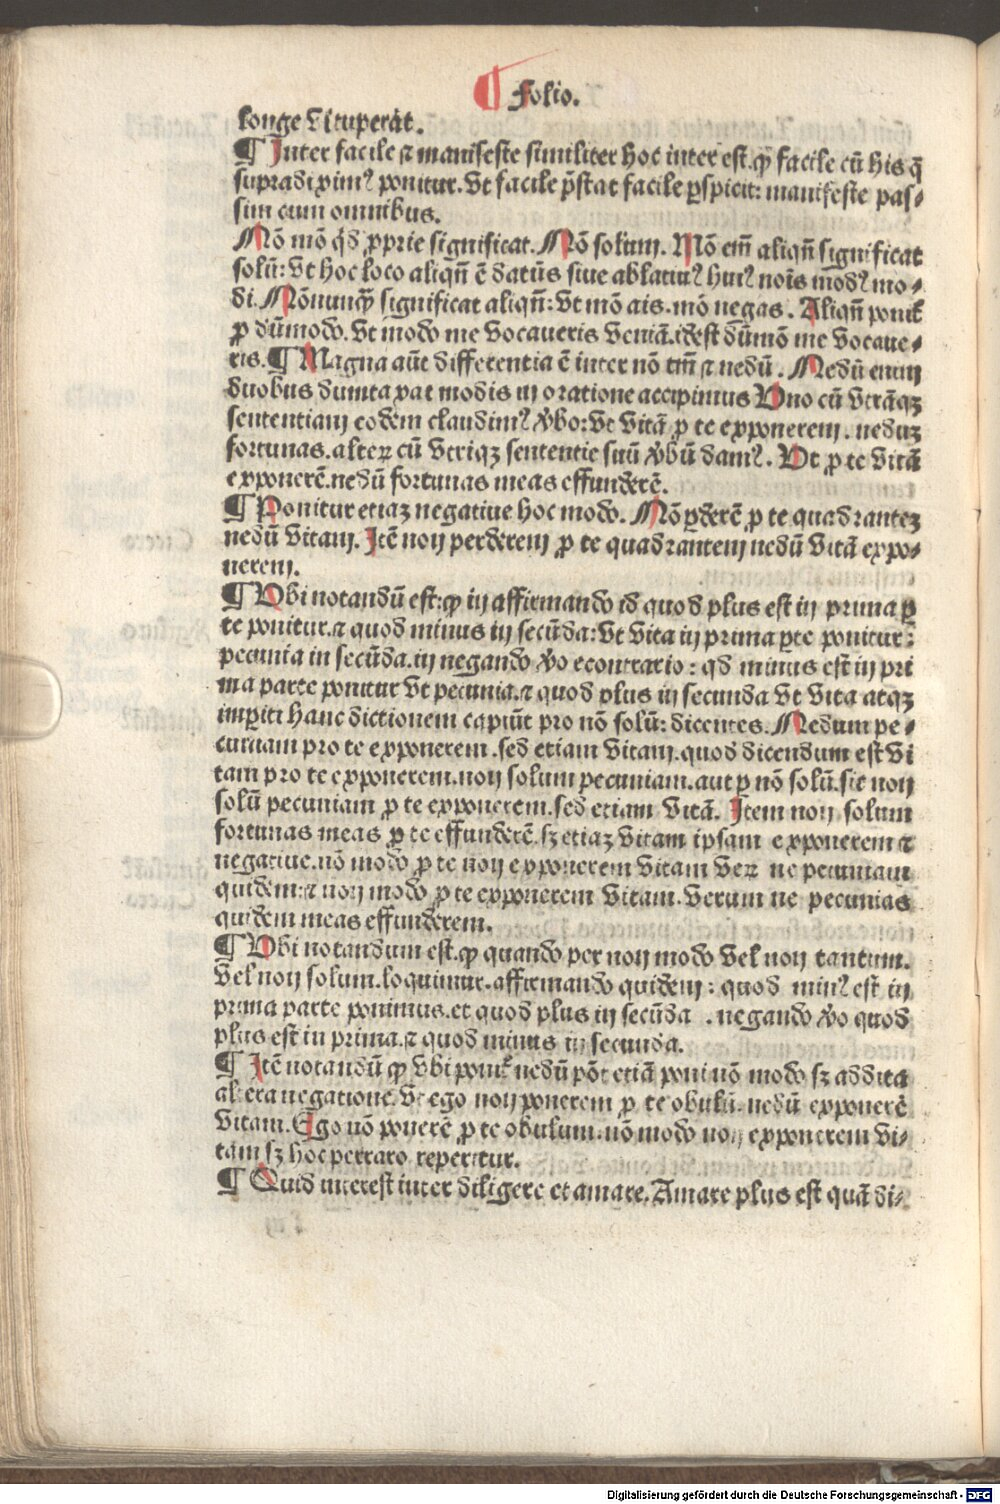 ¶ Folio.
longe vituperāt.
¶ Inter facile ⁊ manifeste similiter hoc inter est. ꝙ facile cū his q̄
supradiximꝰ ponitur. Vt facile p̄stat facile ꝑspicit: manifeste pas⸗
sim cum omnibus.
Nō mō qd̄ ꝓprie significat. Nō solum. Nō em̄ aliqn̄ significat
solū: Vt hoc loco aliqn̄ ē datūs siue ablatiuꝰ huiꝰ nois modꝰ mo⸗
di. Nōnunqꝫ significat aliqn̄: Vt mō ais. mō negas. Aliqn̄ ponit̄
ꝓ dūmodo. Vt modo me vocaueris veniā. idest dūmō me vocaue⸗
ris. ¶ Magna aūt differentia ē inter nō tm̄ ⁊ nedū. Nedū enim
duobus dumtaxat modis in oratione accipimus Vno cū vtrāqꝫ
sententiam eodem claudimꝰ v̄bo: Vt vitā ꝓ te exponerem. neduꝫ
fortunas. alteꝝ cū vtriqꝫ sententie suū v̄bū damꝰ. Vt ꝓ te vitā
exponerē. nedū fortunas meas effunderē.
¶ Ponitur etiaꝫ negatiue hoc modo. Nō ꝑderē ꝓ te quadranteꝫ
nedū vitam. Itē non perderem ꝓ te quadrantem nedū vitā expo⸗
nerem.
¶ Vbi notandū est: ꝙ in affirmando id quod plus est in prima ꝑ
te ponitur. ⁊ quod minus in secūda: Vt vita in prima ꝑte ponitur:
pecunia in secūda. in negando v̄o econtrario: qd minus est in pri
ma parte ponitur vt pecunia. ⁊ quod plus in secunda vt vita atqꝫ
imꝑiti hanc dictionem capiūt pro nō solū: dicentes. Nedum pe⸗
cuniam pro te exponerem. sed etiam vitam. quod dicendum est vi
tam pro te exponerem. non solum pecuniam. aut ꝑ nō solū. sic non
solū pecuniam ꝓ te exponerem. sed etiam vitā. Item non solum
fortunas meas ꝓ te effunderē. sꝫ etiaꝫ vitam ipsam exponerem ⁊
negatiue. nō modo ꝓ te non exponerem vitam veꝝ ne pecuniam
quidem: ⁊ non modo ꝓ te exponerem vitam. verum ne pecunias
quidem meas effunderem.
¶ Vbi notandum est. ꝙ quando per non modo vel non tantum.
vel non solum. loquimur. affirmando quidem: quod minꝰ est in
prima parte ponimus. et quod plus in secūda. negando v̄o quod
plus est in prima. ⁊ quod minus in secunda.
¶ Itē notandū ꝙ vbi ponit̄ nedū pōt etiā poni nō modo sꝫ addita
altera negatione. Vt ego non ponerem ꝓ te obulū. nedū exponerē
vitam. Ego nō ponerē ꝓ te obulum. nō modo non exponerem vi⸗
tam sꝫ hoc perraro reperitur.
¶ Quid interest inter diligere et amare. Amare plus est quā di⸗
Digitalisierung gefördert durch die Deutsche Forschungsgemeinschaft - DFG